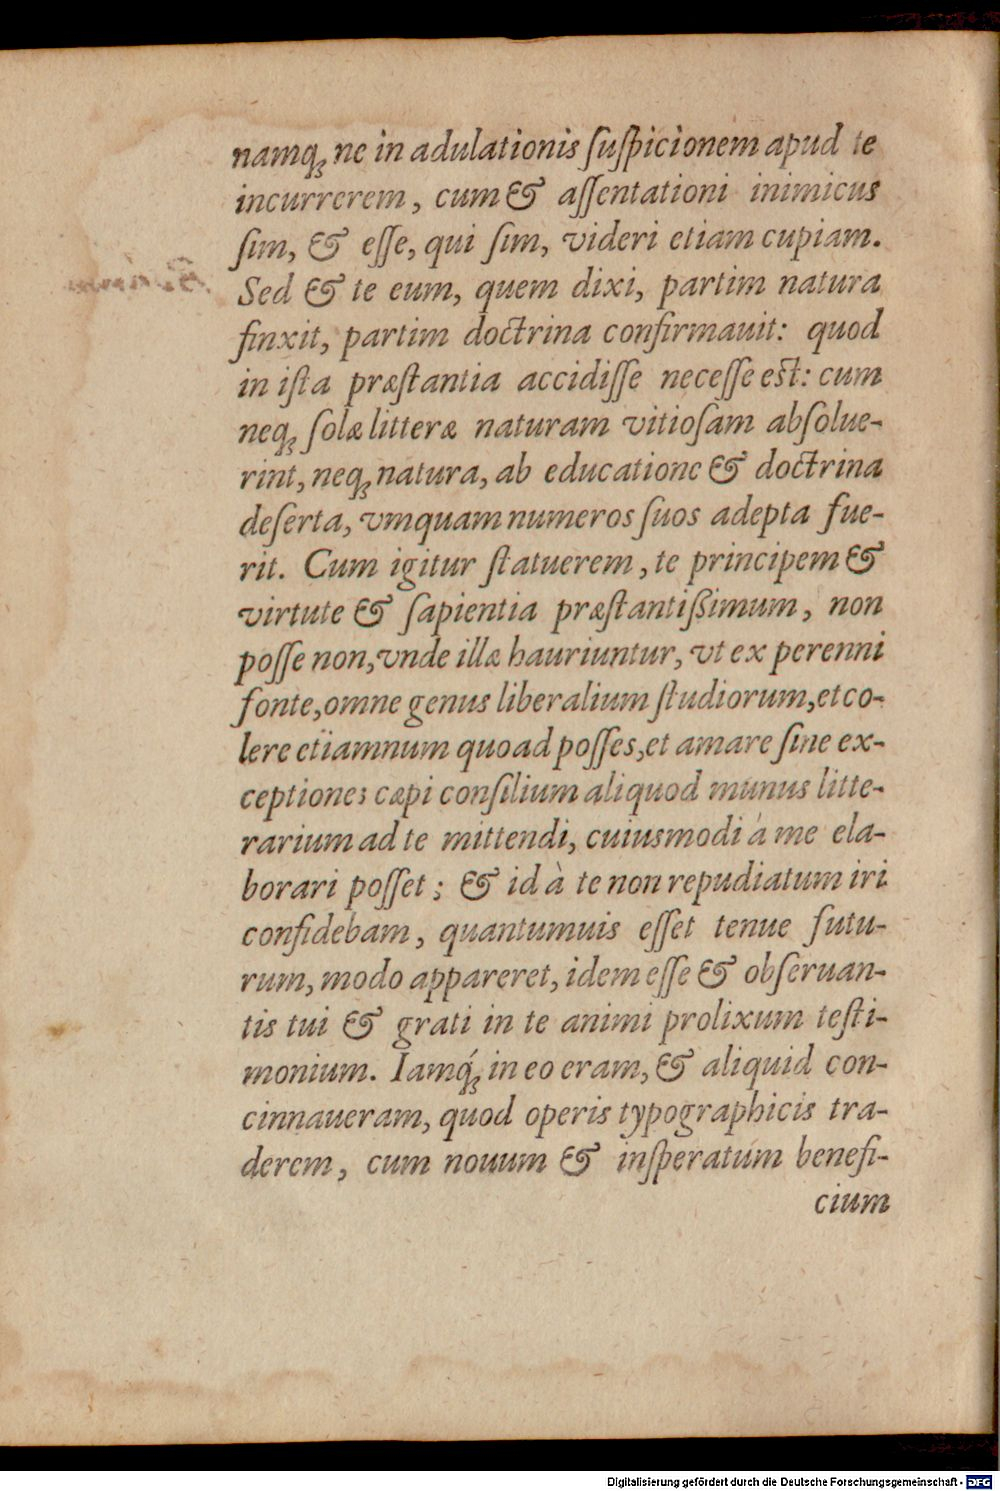 namq́; ne in adulationis ſuſpicionem apud te
incurrerem, cum & aſſentationi inimicus
ſim, & eſſe, qui ſim, videri etiam cupiam.
Sed & te eum, quem dixi, partim natura
finxit, partim doctrina confirmauit: quod
in iſta præſtantia accidiſſe neceſſe est: cum
neq; ſolæ litteræ naturam vitioſam abſolue-
rint, neq; natura, ab educatione & doctrina
deſerta, vmquam numeros ſuos adepta fue-
rit. Cum igitur ſtatuerem, te principem &
virtute & ſapientia præſtantißimum, non
poſſe non, vnde illæ hauriuntur, vt ex perenni
fonte, omne genus liberalium ſtudiorum, et co-
lere etiamnum quoad poſſes, et amare ſine ex-
ceptione; cæpi conſilium aliquod munus litte-
rarium ad te mittendi, cuiusmodi à me ela-
borari poſſet; & id à te non repudiatum iri
confidebam, quantumuis eſſet tenue futu-
rum, modo appareret, idem eſſe & obſeruan-
tis tui & grati in te animi prolixum teſti-
monium. Iamq́; in eo eram, & aliquid con-
cinnaueram, quod operis typographicis tra-
derem, cum nouum & inſperatum benefi-
cium
Digitalisierung gefördert durch die Deutsche Forschungsgemeinschaft - DFG